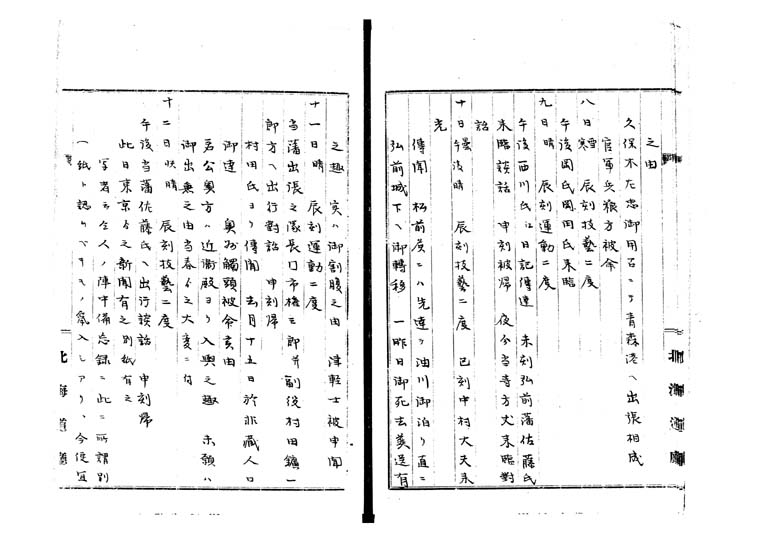 之由
久保木左忠御用召ニテ青森港ヘ出張相成
官軍兵狼方被命
八日 雪 辰刻技藝二度
午後岡氏岡田氏来臨
九日 晴 辰刻運動二度
午後西川氏江日記傳達 未刻弘前藩佐藤氏
来臨談話 申刻被帰 夜分当寺方丈来臨對
話
十日 後晴 辰刻技藝二度 巳刻中村大夫来
光
傳聞 松前虜ニハ先達テ油川御泊リ直ニ
弘前城下ヘ御轉移 一昨日御死去葬送有
之趣 実ハ御割腹之由 津軽士被申聞
十一日 晴 辰刻運動二度
当藩出張之隊長口市橋三郎并副役村田鑛一
郎方ヘ出行對話 申刻帰
村田氏ヨリ傳聞 去月十五日於非蔵人口
御達 奥羽觸頭被命候由
君公奥方ハ近衛殿ヨリ入輿之趣 未頚ハ
御出無之由当春ゟ之大変ニ付
十二日 快晴 辰刻技藝二度
午後当藩佐藤氏ヘ出行談話 申刻帰
此日東京ゟ之新聞有之別紙有之
写者云全人ノ陣中備忘録ニ此ニ所謂別
一紙ト認ムベキモノ竄入シアリ、今便宜
北海道廳
北海道廳